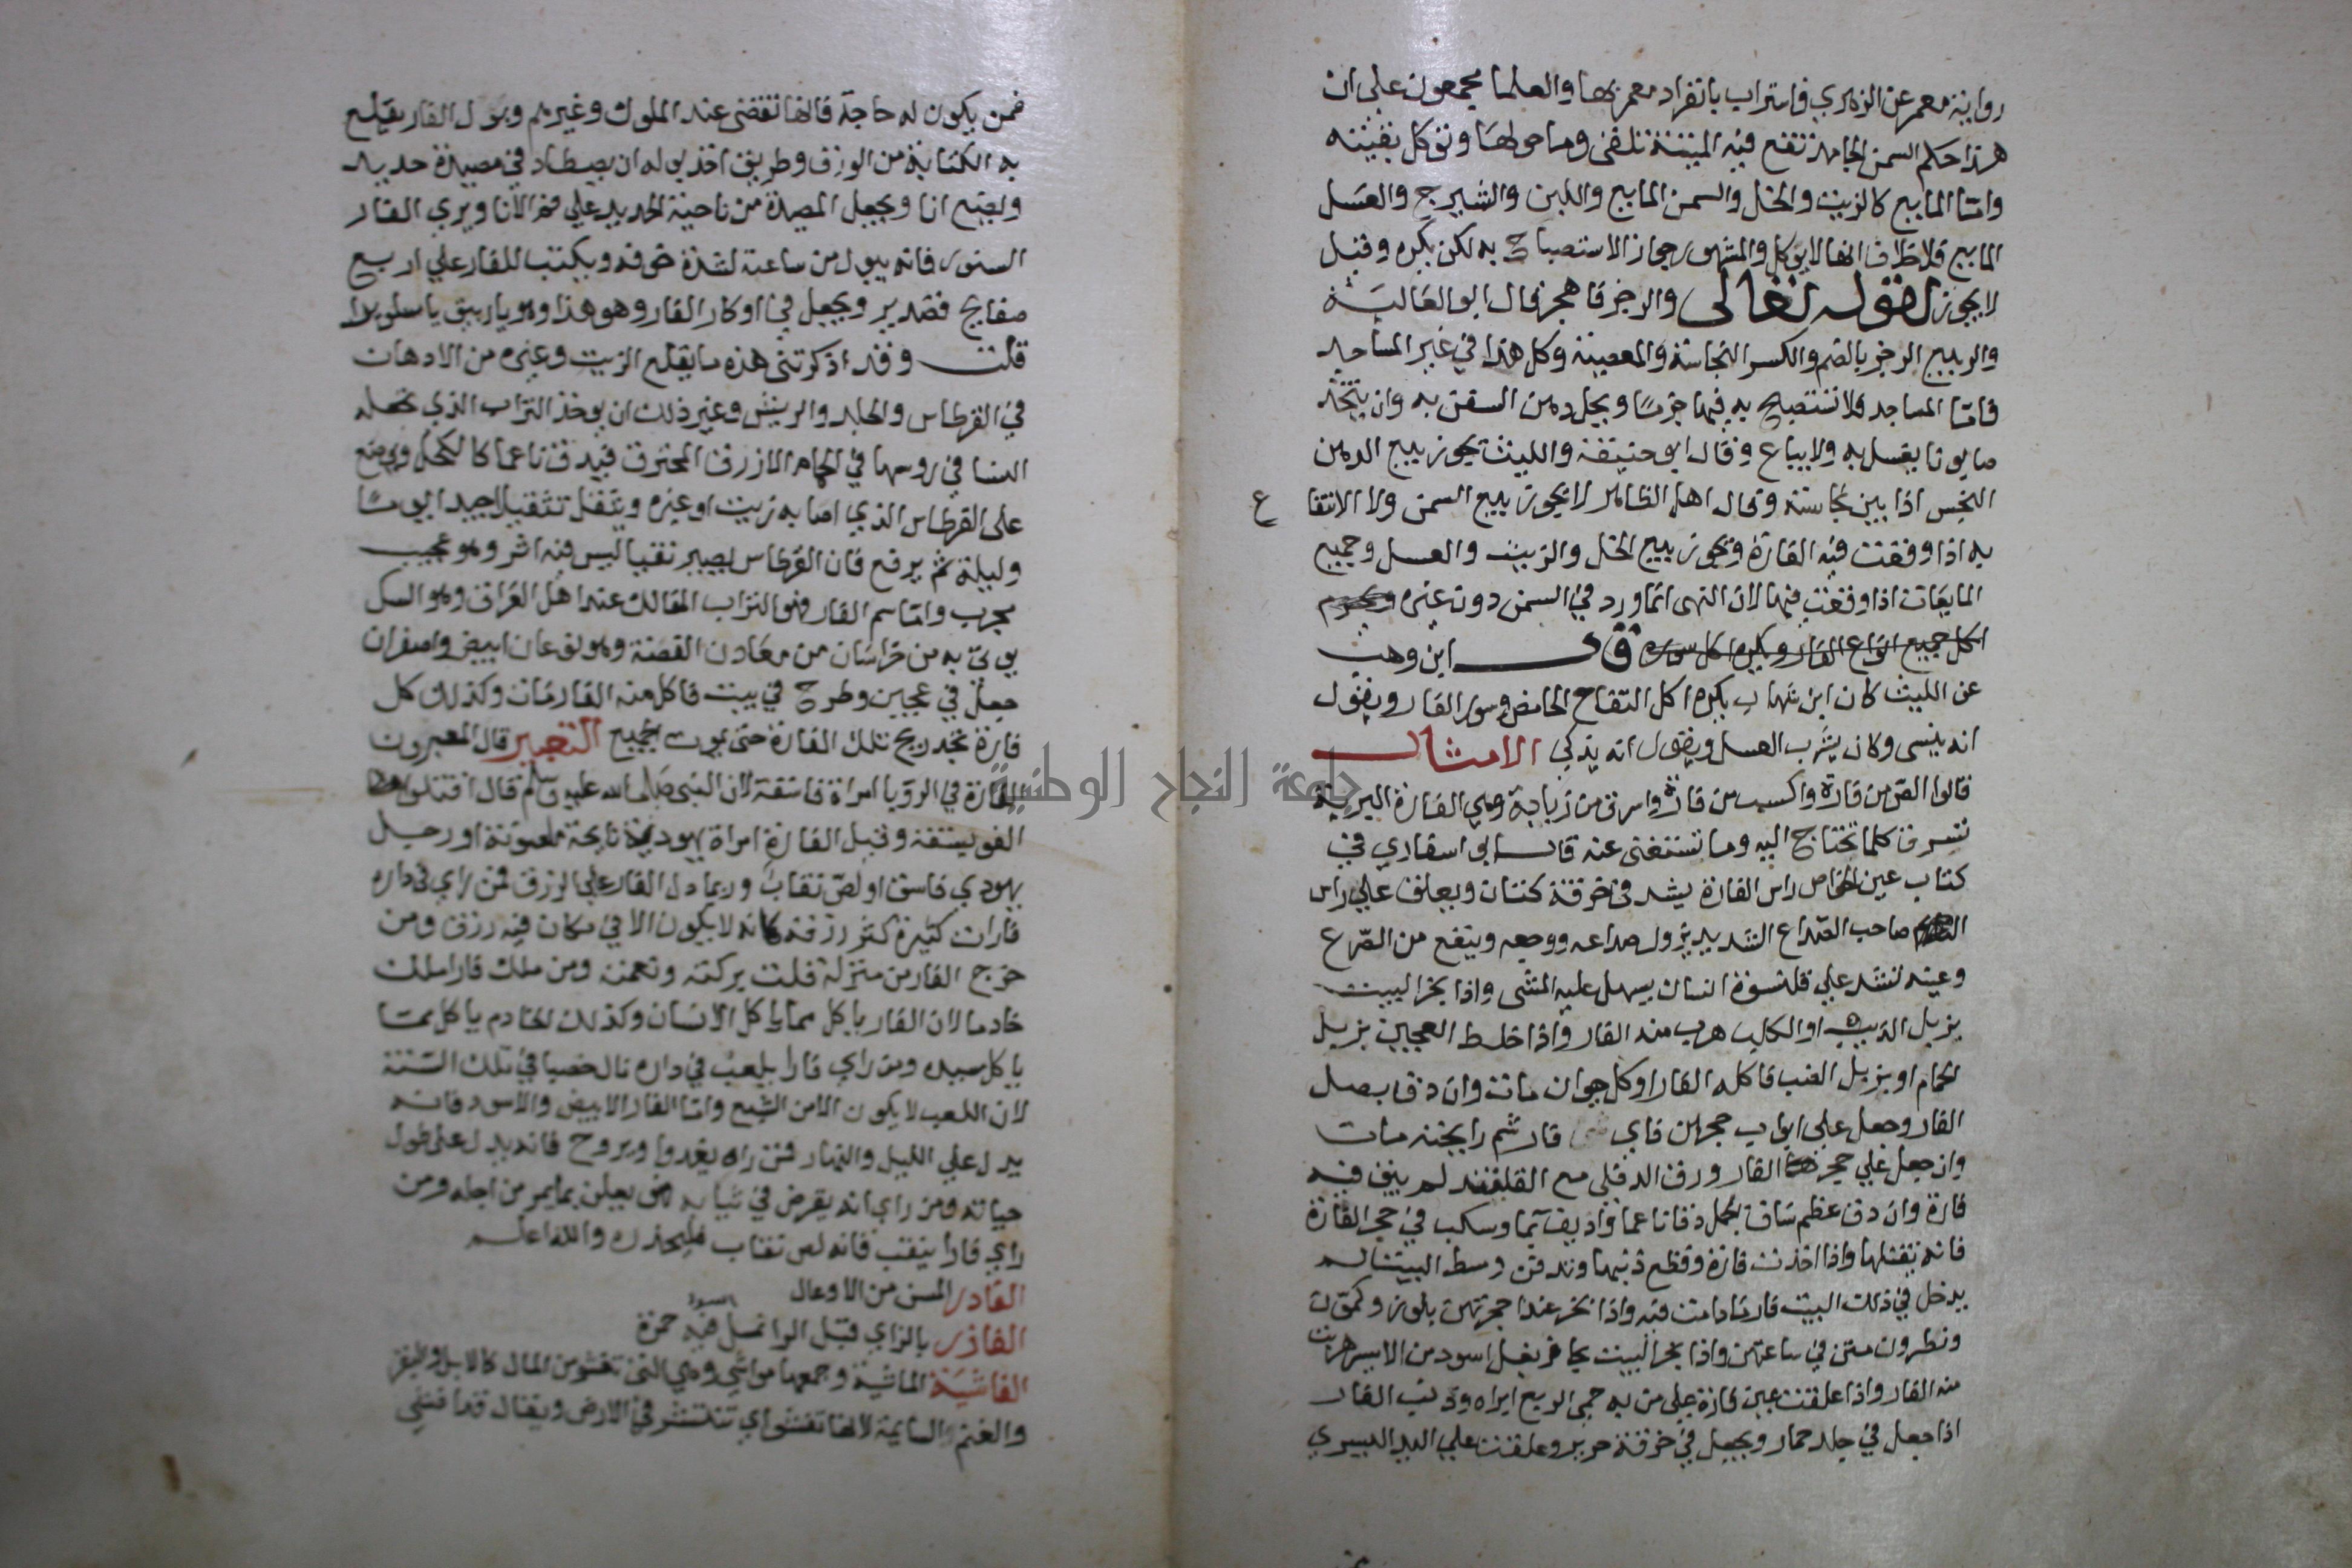 رواية معمر عن الزهري فاستراب بانفراد معمر بها والعلما مجمعون على ان
هذا حكم السمن الجامد تقع فيه الميتة تلقى وما حولها وتوكل بقيته
وامتا المايع كالزيت والخل والسمن المايع واللبن والشيرج والعسل
المايع فلا خلاف انها لا يوكل والمشهور جواز الاستصباح به لكن يكره وقيل
لا يجوز لقوله تعالى والرجز فاهجر قال ابو العالية
والربيع الرجز بالضم والكسر النجاسة والمعصية وكل هذا في غير المساجد
فامتا المساجد فلا تستصبح به فيها جزما ويحل دهن السفن به وان يتخذ
صابونا يغسل به ولا يباع وقال ابو حنيفة والليث يجوز بيع الدهن
النجس اذا بين نجاسته وقال اهل الظاهر لا يجوز بيع السمن ولا الانتفا ع
به اذا وقعت فيه الفارة ويجوز بيع الخل والزيت والعسل وجميع
المايعات اذا وقعت فيها لان النهى انما ورد في السمن دون غيره ويحرم
اكل جميع انواع الفار ويكره اكل سوره قال ابن وهب
عن الليث كان ابن شهاب يكره اكل التفاح الحامض وسور الفار ويقول
انه ينسى وكان يشرب العسل ويقول انه يذكي الامثال
قالوا الص من فارة واكسب من فارة واسرق من زبابة وهي الفارة البرية
تسرق كلما تحتاج اليه وما تستغنى عنه قال ابو اسقاري في
كتاب عين الخواص راس الفارة يشد في خرقة كتان ويعلق على راس
صاحب الصداع الشديد يزول صداعه ووجعه وينفع من الصرع
وعينه تشد على قلنسوة انسان يسهل عليه المشى واذا بخر البيت
بزبل الذيب او الكلب هرب منه الفار واذا خلط العجين بزبل
الحمام او بزبل الضب فاكله الفار او كل حيوان مات وان دق بصل
الفار وجعل على ابواب حجرهن فاي فار شم رايحته مات
وان جعل على حجر الفار ورق الدفلى مع القلقند لم يبق فيه
فارة وان دق عظم ساق جمل دقا ناعما واديف بما وسكب في حجر الفارة
فانه يقتلها واذا اخذت فارة وقطع ذنبها ودفن وسط البيت لم
يدخل في ذلك البيت فار مادامت فيه واذا بخر عند حجرتهن بلوز وكمون
ونطرون متن في ساعتهن واذا بخر البيت بحافر بغل اسود من الايسر هربت
منه الفار واذا علقت عين فارة على من به حمى الربع ابراه وذنب الفار
اذا جعل في جلد حمار ويجعل في خرقة حرير وعلقت على اليد اليسرى
فمن يكون له حاجة فانها تقضى عند الملوك وغيرهم وبول الفار يقلع
به الكتابة من الورق وطريق اخذ بوله ان يصطاد في مصيدة حديد
ويضع انا ويجعل المصيدة من ناحية الحديد على فم الانا ويري الفار
السنور فانه يبول من ساعته لشدة خوفه ويكتب للفار على اربع
صفايح قصدير ويجعل في اوكار الفار وهو هذا
قلت وقد اذكرتنى هذه ما يقلع الزيت وغيره من الادهان
في القرطاس والجلد والريش وغير ذلك ان يوخذ التراب الذي تجعله
النسا في روسها في الحمام الازرق المحترق فيدق ناعما كالكحل ويوضع
على القرطاس الذي اصابه زيت او غيره ويثقل تثقيلا جيدا يوما
وليلة ثم يرفع فان القرطاس يصير نقيا ليس فيه اثر وهو عجيب
مجرب وامتا سم الفار فهو التراب الهالك عند اهل العراق وهو السك
يوتى به من خراسان من معادن الفضة وهو نوعان ابيض واصفر ان
جعل في عجين وطرح في بيت فاكل منه الفار مات وكذلك كل
فارة تجد ريح تلك الفارة حتى يموت الجميع التعبير قال المعبرون
الفارة في الرويا امراة فاسقة لان النبي صلى الله عليه وسلم قال اقتلوا
الفويسقة وقيل الفارة امراة يهودية نايحة ملعونة او رجل
يهودي فاسق او لص نقاب وربما دل الفار على الرزق فمن راي في داره
فارات كثيرة كثر رزقه لانه لا يكون الا في مكان فيه رزق ومن
خرج الفار من منزله قلت بركته ونعمته ومن ملك فارا ملك
خادما لان الفار ياكل مما ياكل الانسان وكذلك الخادم ياكل مما
ياكل سيده ومن راي فارا يلعب في داره نال خصبا في تلك السنة
لان اللعب لا يكون الا من الشبع وامتا الفار الابيض والاسود فانه
يدل على الليل والنهار فمن راه يغدوا ويروح فانه يدل على طول
حياته ومن راي انه يقرض في ثيابه فهو يعلن بما يمر من اجله ومن
راي فارا ينقب فانه لص نقاب فليحذره والله اعلم
الفادر المسن من الاوعال
الفازر بالزاي قبل الرا نمل اسود فيه حمرة
الفاشية الماشية وجمعها مواشي وهي التي تفشو من المال كالابل والبقر
والغنم والسايمة لانها تفشو اي تنتشر في الارض ويقال قد افشى
جامعة النجاح الوطنية